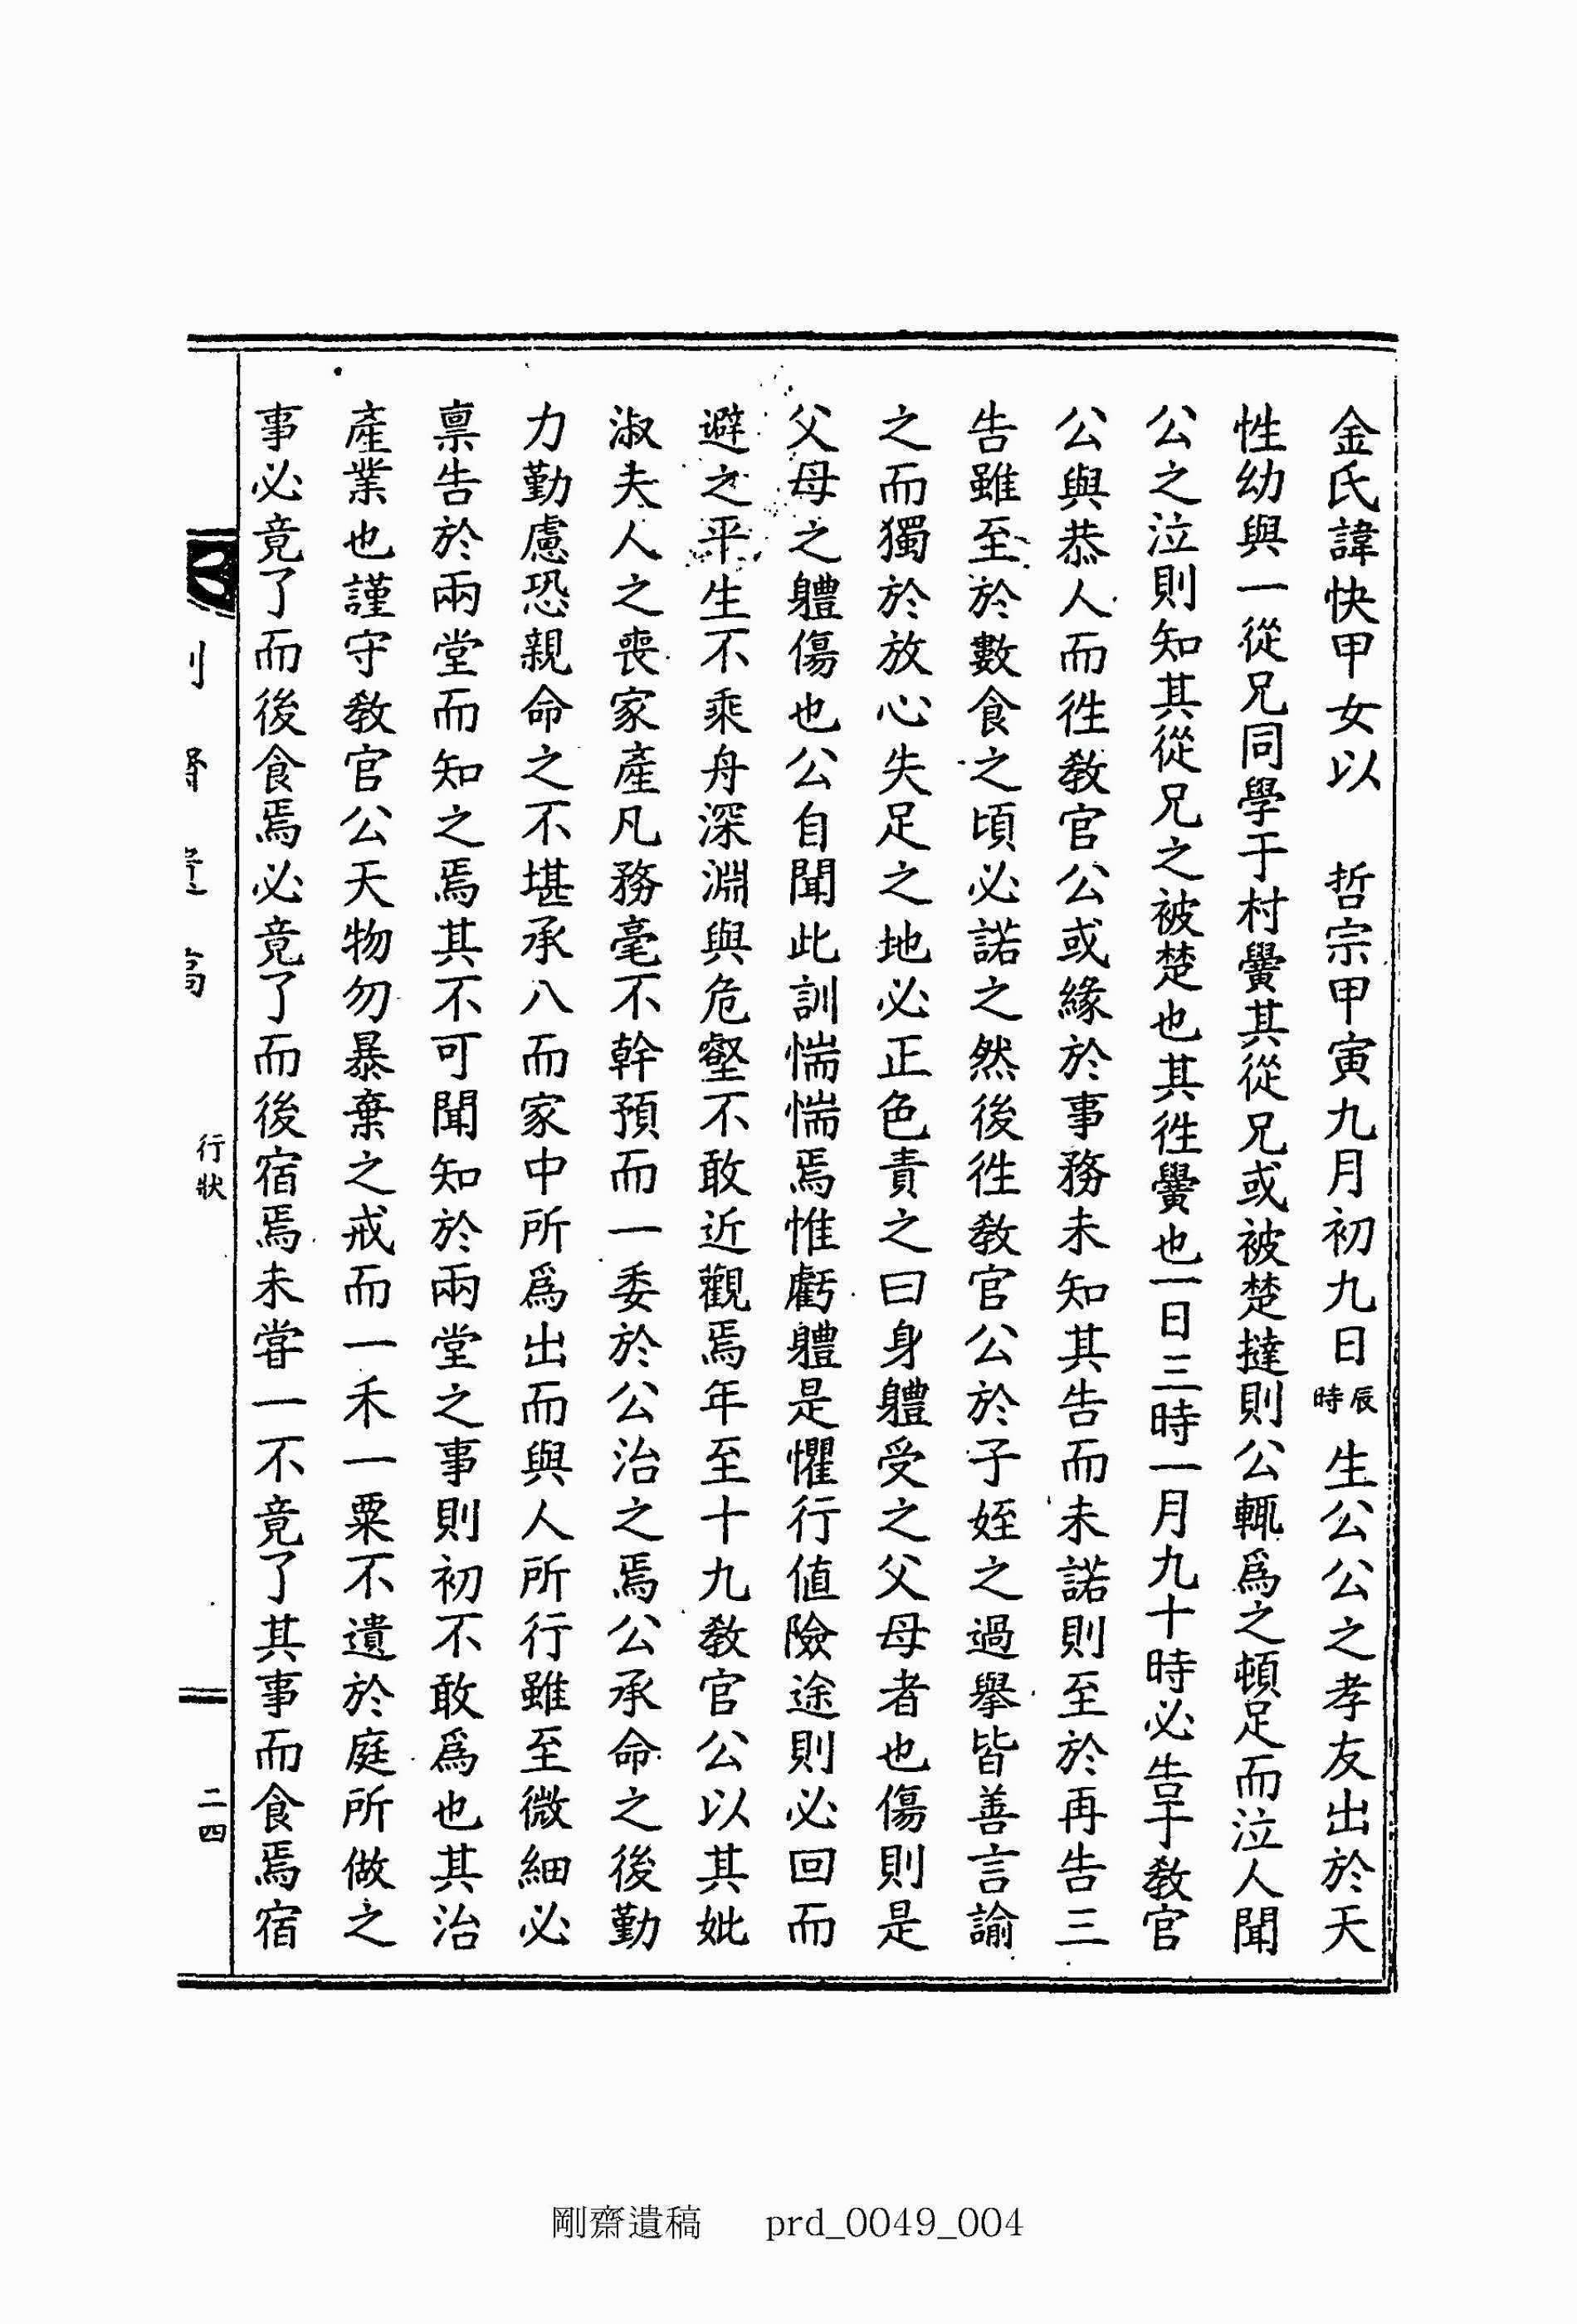 金氏諱快甲女以　哲宗甲寅九月初九日辰時生公公之孝友出於天
性幼與一從兄同學于村黌其從兄或被楚撻則公輒爲之頓足而泣人聞
公之泣則知其從兄之被楚也其徃黌也一日三時一月九十時必告于敎官
公與恭人而徃敎官公或緣於事務未知其告而未諾則至於再告三
告雖至於數食之頃必諾之然後徃敎官公於子姪之過擧皆善言諭
之而獨於放心失足之地必正色責之曰身體受之父母者也傷則是
父母之體傷也公自聞此訓惴惴焉惟虧體是懼行値險途則必回而
避之平生不乘舟深淵與危壑不敢近觀焉年至十九敎官公以其妣
淑夫人之喪家產凡務毫不幹預而一委於公治之焉公承命之後勤
力勤慮恐親命之不堪承八而家中所爲出而與人所行雖至微細必
禀告於兩堂而知之焉其不可聞知於兩堂之事則初不敢爲也其治
產業也謹守敎官公天物勿暴棄之戒而一禾一粟不遺於庭所做之
事必竟了而後食焉必竟了而後宿焉未甞一不竟了其事而食焉宿
行狀
二四
剛齋遺稿 prd_0049_004